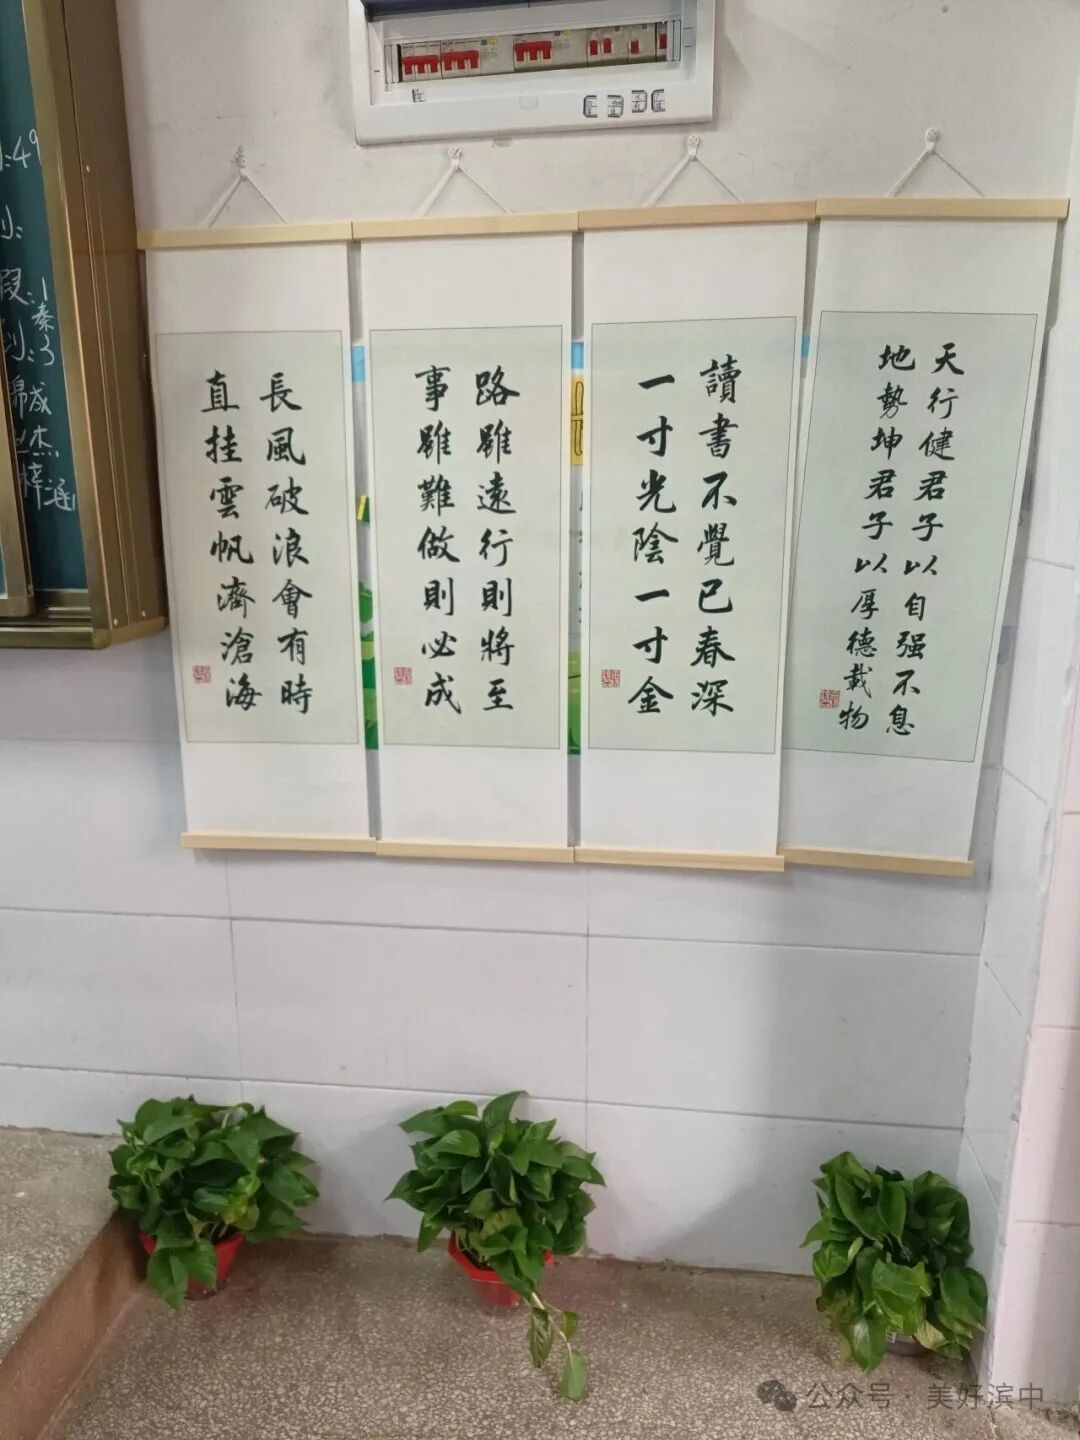 天行健君子以自强不息
地勢坤君子以厚德載物
讀書不覺已春深
一寸光陰一寸金
路雖遠行則將至
事雖難做則必成
長風破浪會有時
直挂雲帆濟滄海
公众号·美好滨中